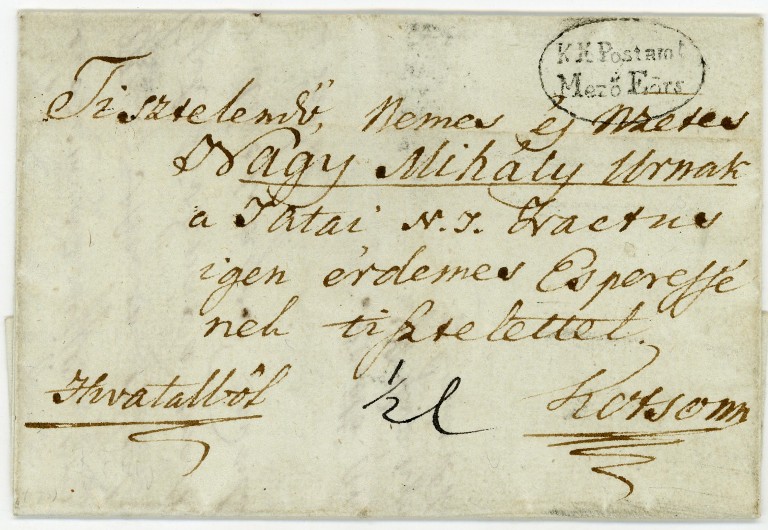 K K Postamt
Mezö Eörs
Tisztelendő, Nemes és Nzetes
Nagy Mihály Urnak
a Tatai N. T. Tractus
igen érdemes Esperessé
nek tisztelettel.
Hivatalból 1/2 l Kotsonn